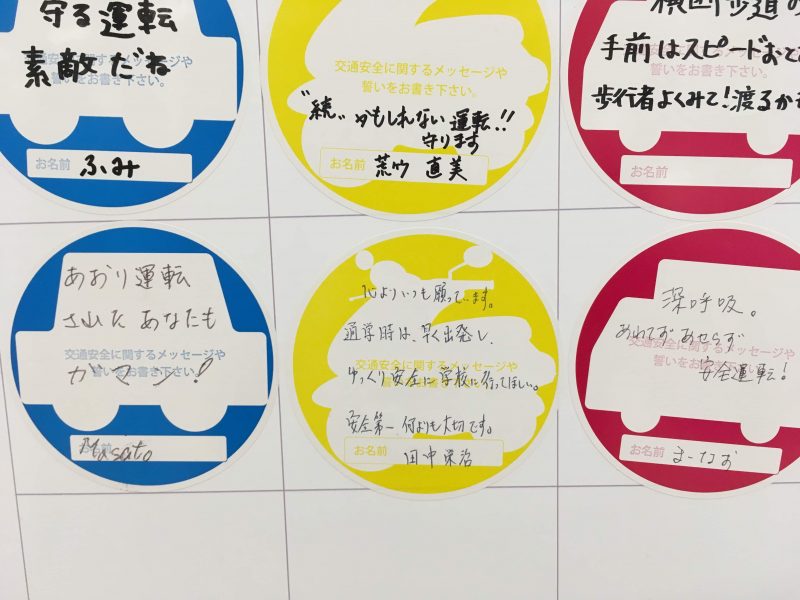 守る運転
素敵だね
交通安全に関するメッセージや
誓いをお書き下さい。
お名前 ふみ
交通安全に関するメッセージや
誓いをお書き下さい。
"続" かもしれない運転!!
守ります
お名前 荒内 直美
横断歩道の
手前はスピードおと
歩行者よくみて!渡るかも
お名前
あおり運転
された あなたも
交通安全に関するメッセージや
誓いをお書き下さい。
ガマン!
お名前 Masato
心よりいつも願っています。
通学時は、早く出発し、
交通安全に関するメッセージや
ゆっくり安全に学校に行ってほしい。
安全第一、何よりも大切です。
お名前 田中 栄治
深呼吸。
あわてず あせらず
交通安全に関するメッセージや
誓いをお書き下さい。
安全運転!
お名前 まーなお